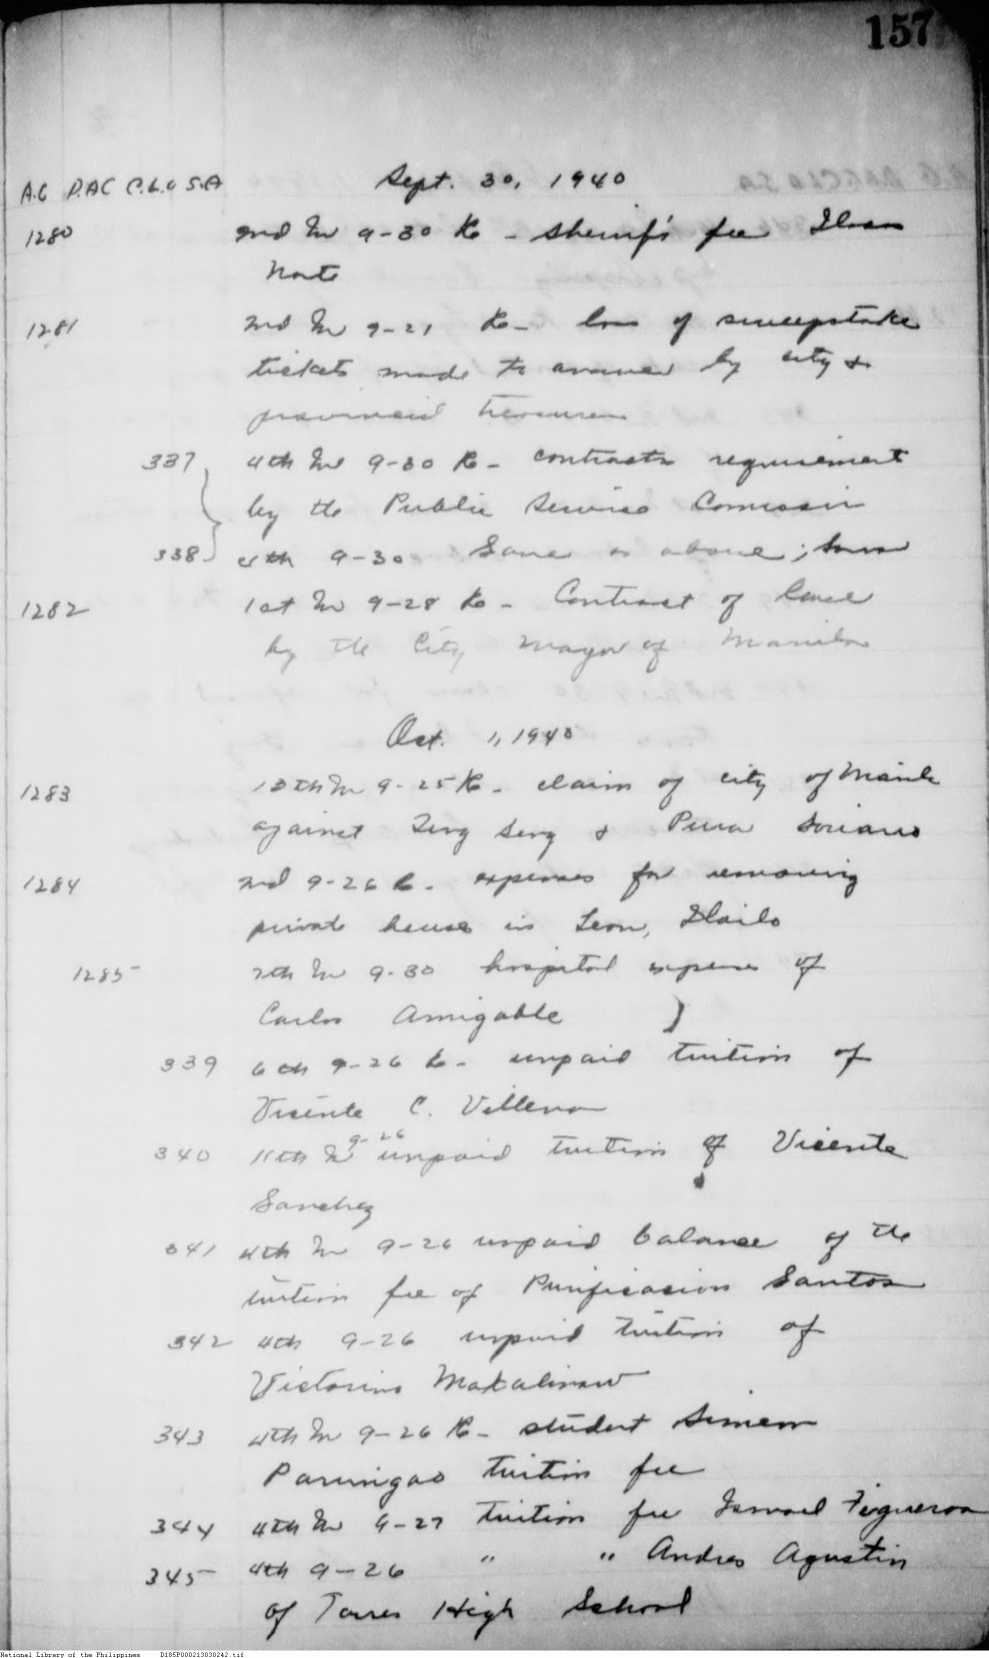 157
A.G D.AC C.L.O S.A Sept. 30, 1940
1280 2nd In 9-30 Re - sheriff's fee Ilocos
Norte
1281 2nd In 9-21 Re - loss of sweepstake
tickets made to answer by city &
provincial treasurer
337 4th In 9-30 Re - contracts requirement
by the Public Service
338 4th 9-30 Same as above;
1282 1st In 9-28 Re - Contract of lease
by the City Mayor of Manila
Oct. 1, 1940
1283 10th In 9-25 Re - claim of city of Manila
against Seng & Pura Soriano
1284 2nd 9-26 Re - expenses for removing
private house in Leon, Iloilo
1285 7th In 9-30 hospital expenses of
Carlos Amigable )
339 6th 9-26 Re - unpaid tuition of
Vicente C. Villena
340 11th In 9-26 unpaid tuition of Vicente
Sanchez
341 4th In 9-26 unpaid balance of the
tuition fee of Purificacion Santos
342 4th 9-26 unpaid tuition of
Victorino Makalinaw
343 4th In 9-26 Re - student Simeon
Parungao tuition fee
344 4th In 9-27 tuition fee Ismael Figueroa
345 4th 9-26 " " Andres Agustin
of Torres High School
National Library of the Philippines D185P000213030242.tif